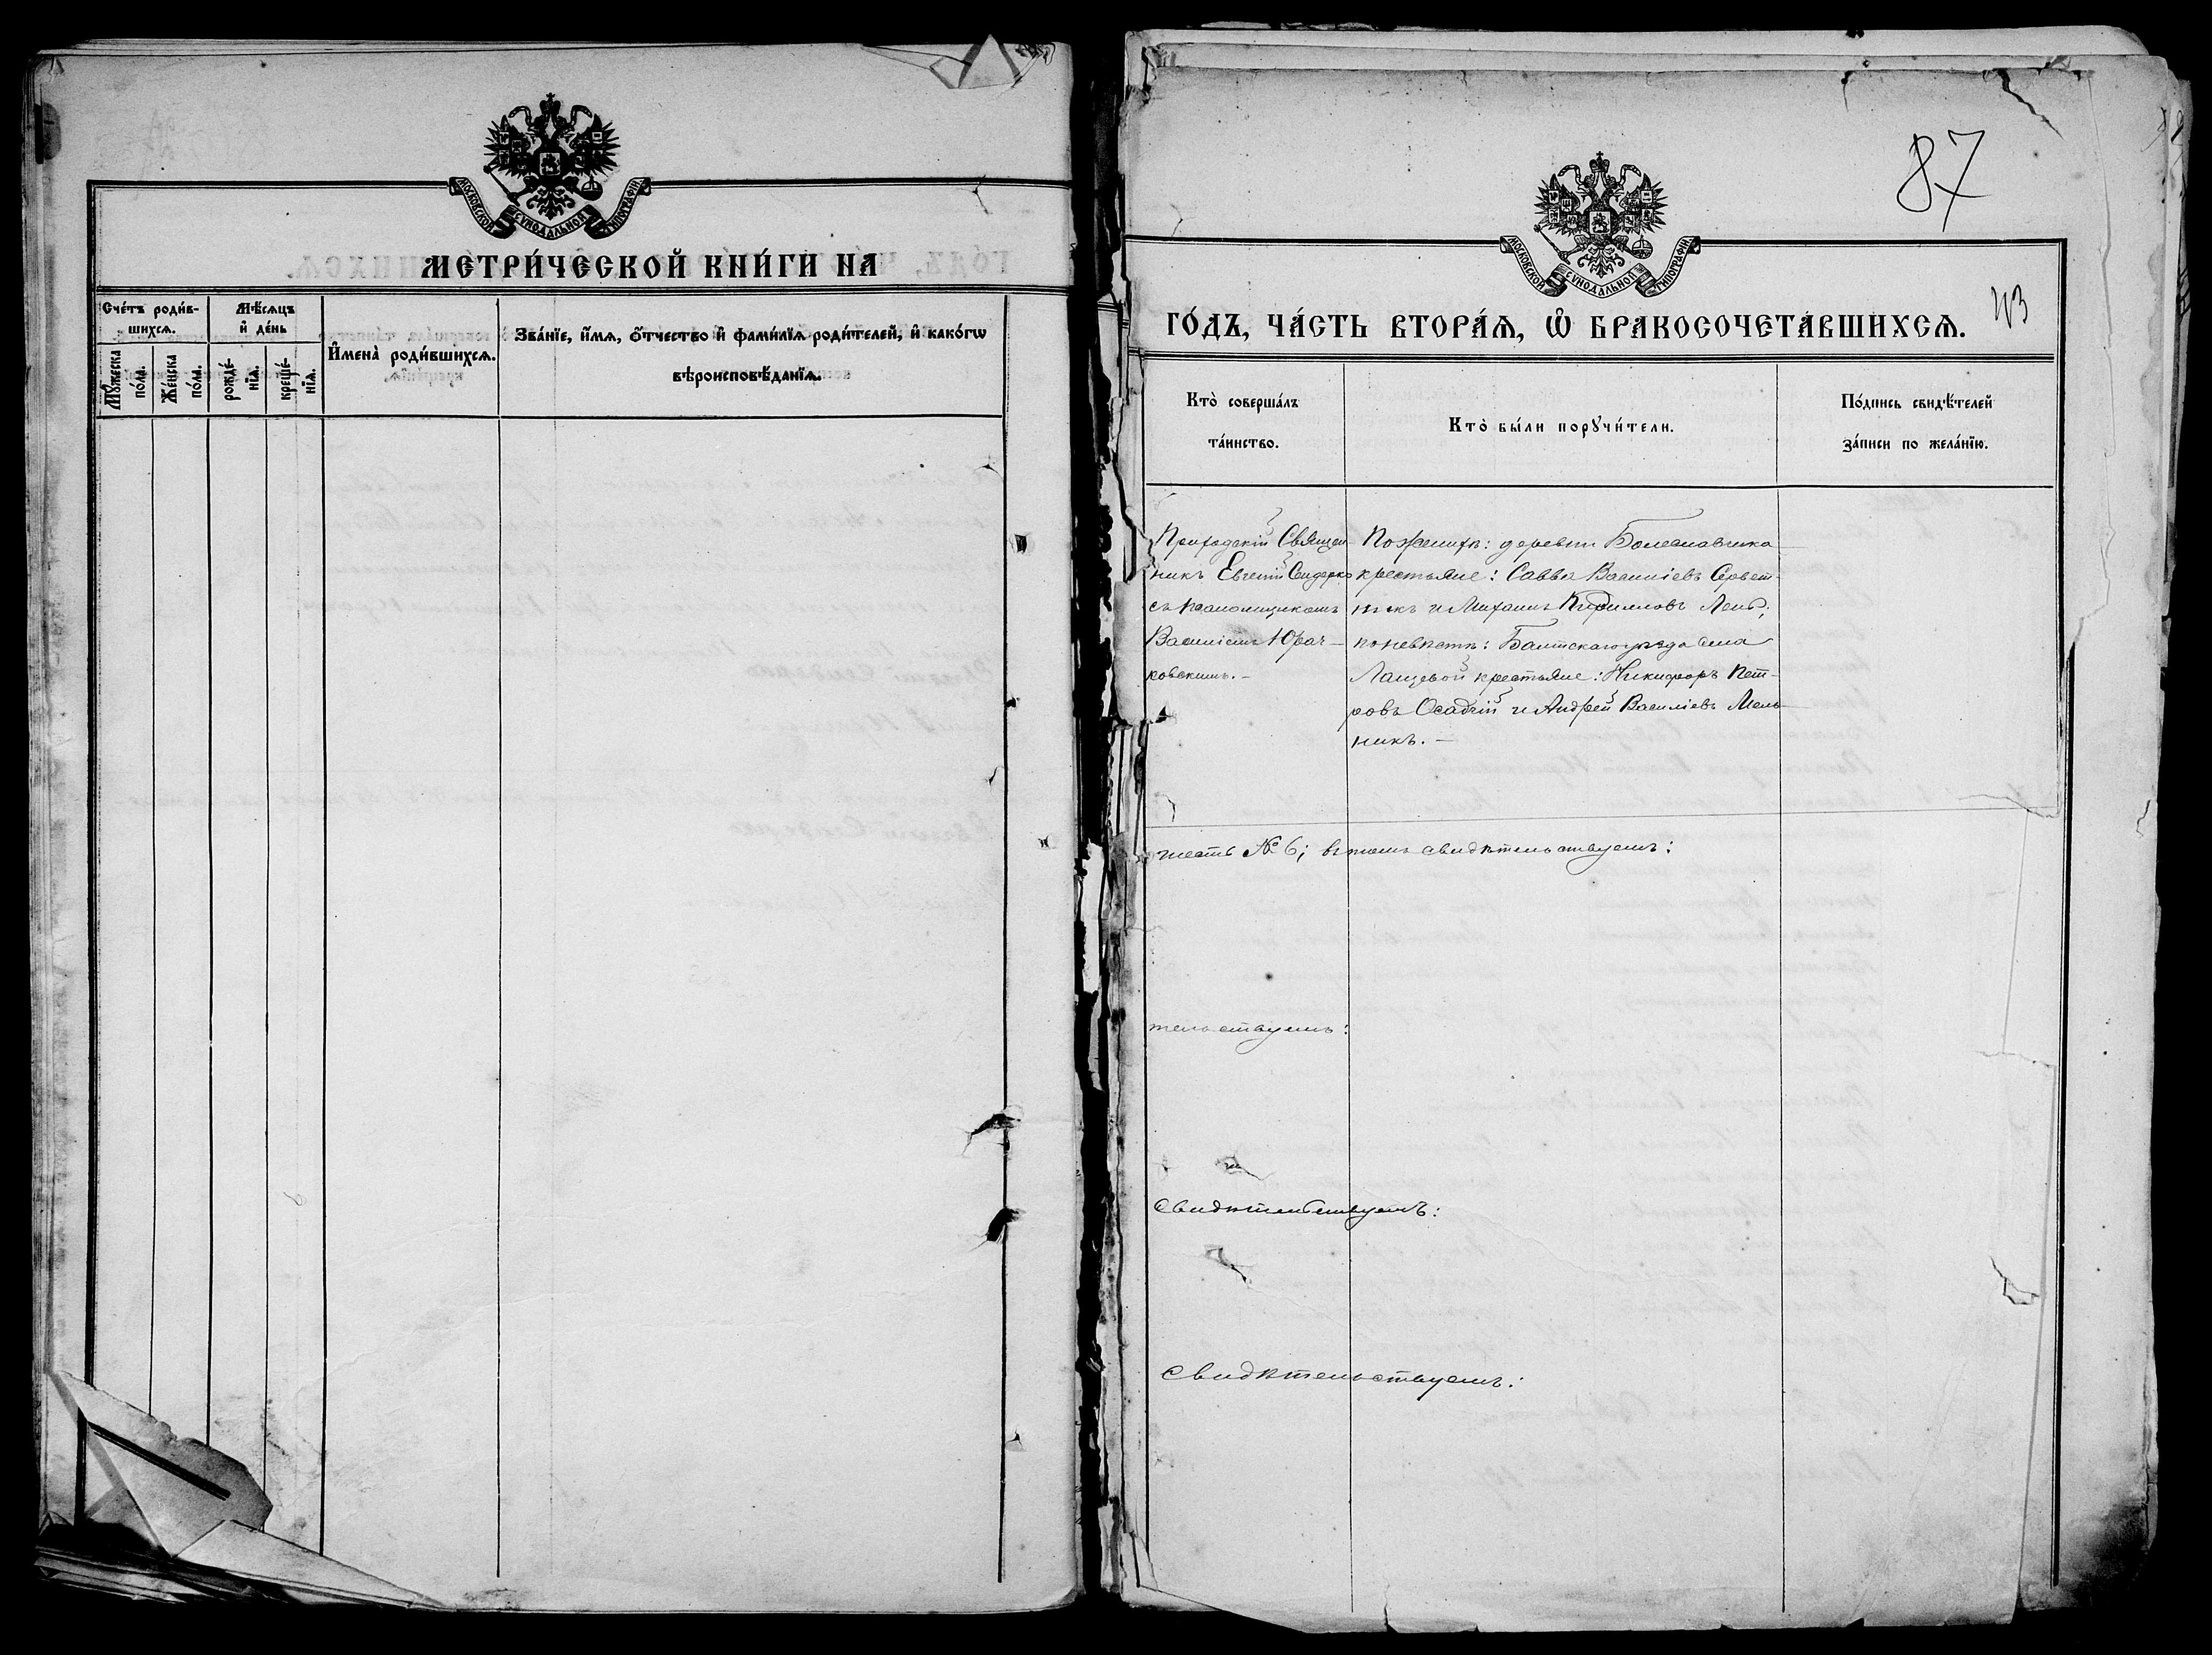 МОСКОВСКОЙ СѴНОДАЛЬНОЙ ТИПОГРАФІИ
МЕТРИ́ЧЕСКОЙ КНИ́ГИ НА
Сче́тъ роди́в-
шихсѧ.
Мѣ́сѧцъ
и҆ де́нь
И҆мена̀ роди́вшихсѧ.
Зва́нїе, и҆́мѧ, ѻ҆́тчество и҆ фами́лїѧ роди́телей, и҆ како́гѡ
вѣроисповѣ́данїѧ.
Мꙋ́жеска
по́ла.
Же́нска
по́ла.
рожде́-
нїѧ.
креще́-
нїѧ.
87
МОСКОВСКОЙ СѴНОДАЛЬНОЙ ТИПОГРАФІИ
ГО́ДЪ, ЧА́СТЬ ВТОРА́Ѧ, Ѡ҆ БРАКОСОЧЕТА́ВШИХСѦ.
Кто̀ соверша́лъ
та́инство.
Кто̀ бы́ли порꙋчи́тели.
По́дпись свидѣ́телей
за́писи по жела́нїю.
Приходскій Священ-
никъ Евгеній Сендерко
съ псаломщикомъ
Василіемъ Юрач-
ковскимъ.-
По женихѣ: деревни Болеславчика
крестьяне: Савва Василіевъ Сервет-
никъ и Михаилъ Кирилловъ Лень;
по невѣстѣ: Балтскаго уѣзда села
Лащевой крестьяне: Никифоръ Пет-
ровъ Осадчій и Андрей Василіевъ Мель-
никъ.-
шесть № 6; въ томъ свидѣтельствуемъ:
тельствуемъ:
свидѣтельствуемъ:
свидѣтельствуемъ: